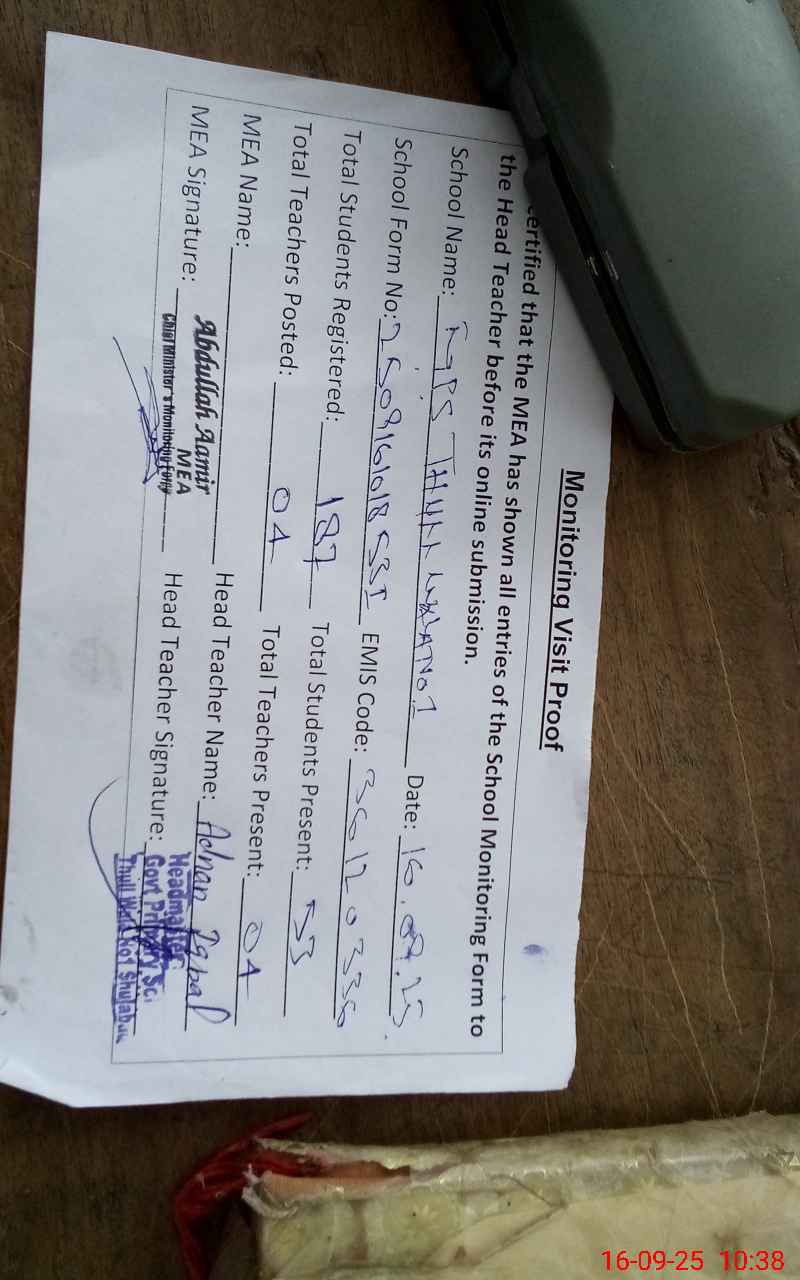 Monitoring Visit Proof
certified that the MEA has shown all entries of the School Monitoring Form to
the Head Teacher before its online submission.
School Name: GPS THULL Date: 16.09.25.
School Form No: EMIS Code: 36120336
Total Students Registered: 187 Total Students Present: 53
Total Teachers Posted: 04 Total Teachers Present: 04
MEA Name: Abdullah Aamir Head Teacher Name: Adnan Iqbal
MEA
MEA Signature: Chief Minister's Monitoring Force Head Teacher Signature:
Headmaster
Govt Primary Sc
Thull Wala Not Shujab
16-09-25 10:38